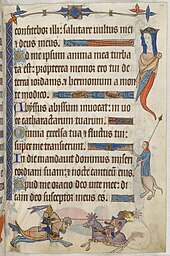 confitebor illi: salutare vultus mei
et deus meus.
Ad me ipsum anima mea turba
ta est: propterea memor ero tui de
terra iordanis et hermonium a mon
te modico.
Abyssus abyssum invocat: in vo
ce catharactarum tuarum.
Omnia excelsa tua et fluctus tui:
super me transierunt.
In die mandavit dominus miseri
cordiam suam: et nocte canticum eius.
Apud me oratio deo vite mee: di
cam deo susceptor meus es.